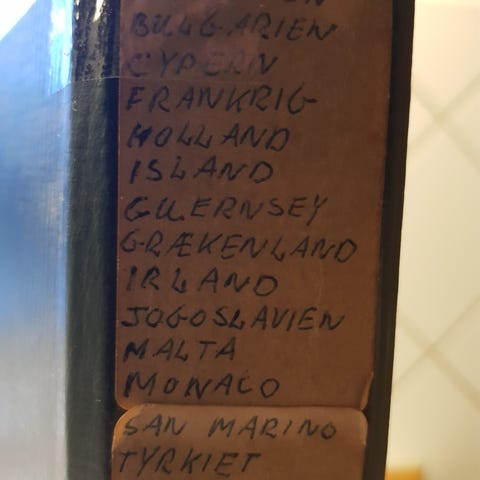 BULGARIEN
CYPERN
FRANKRIG
HOLLAND
ISLAND
GUERNSEY
GRÆKENLAND
IRLAND
JOGOSLAVIEN
MALTA
MONACO
SAN MARINO
TYRKIET